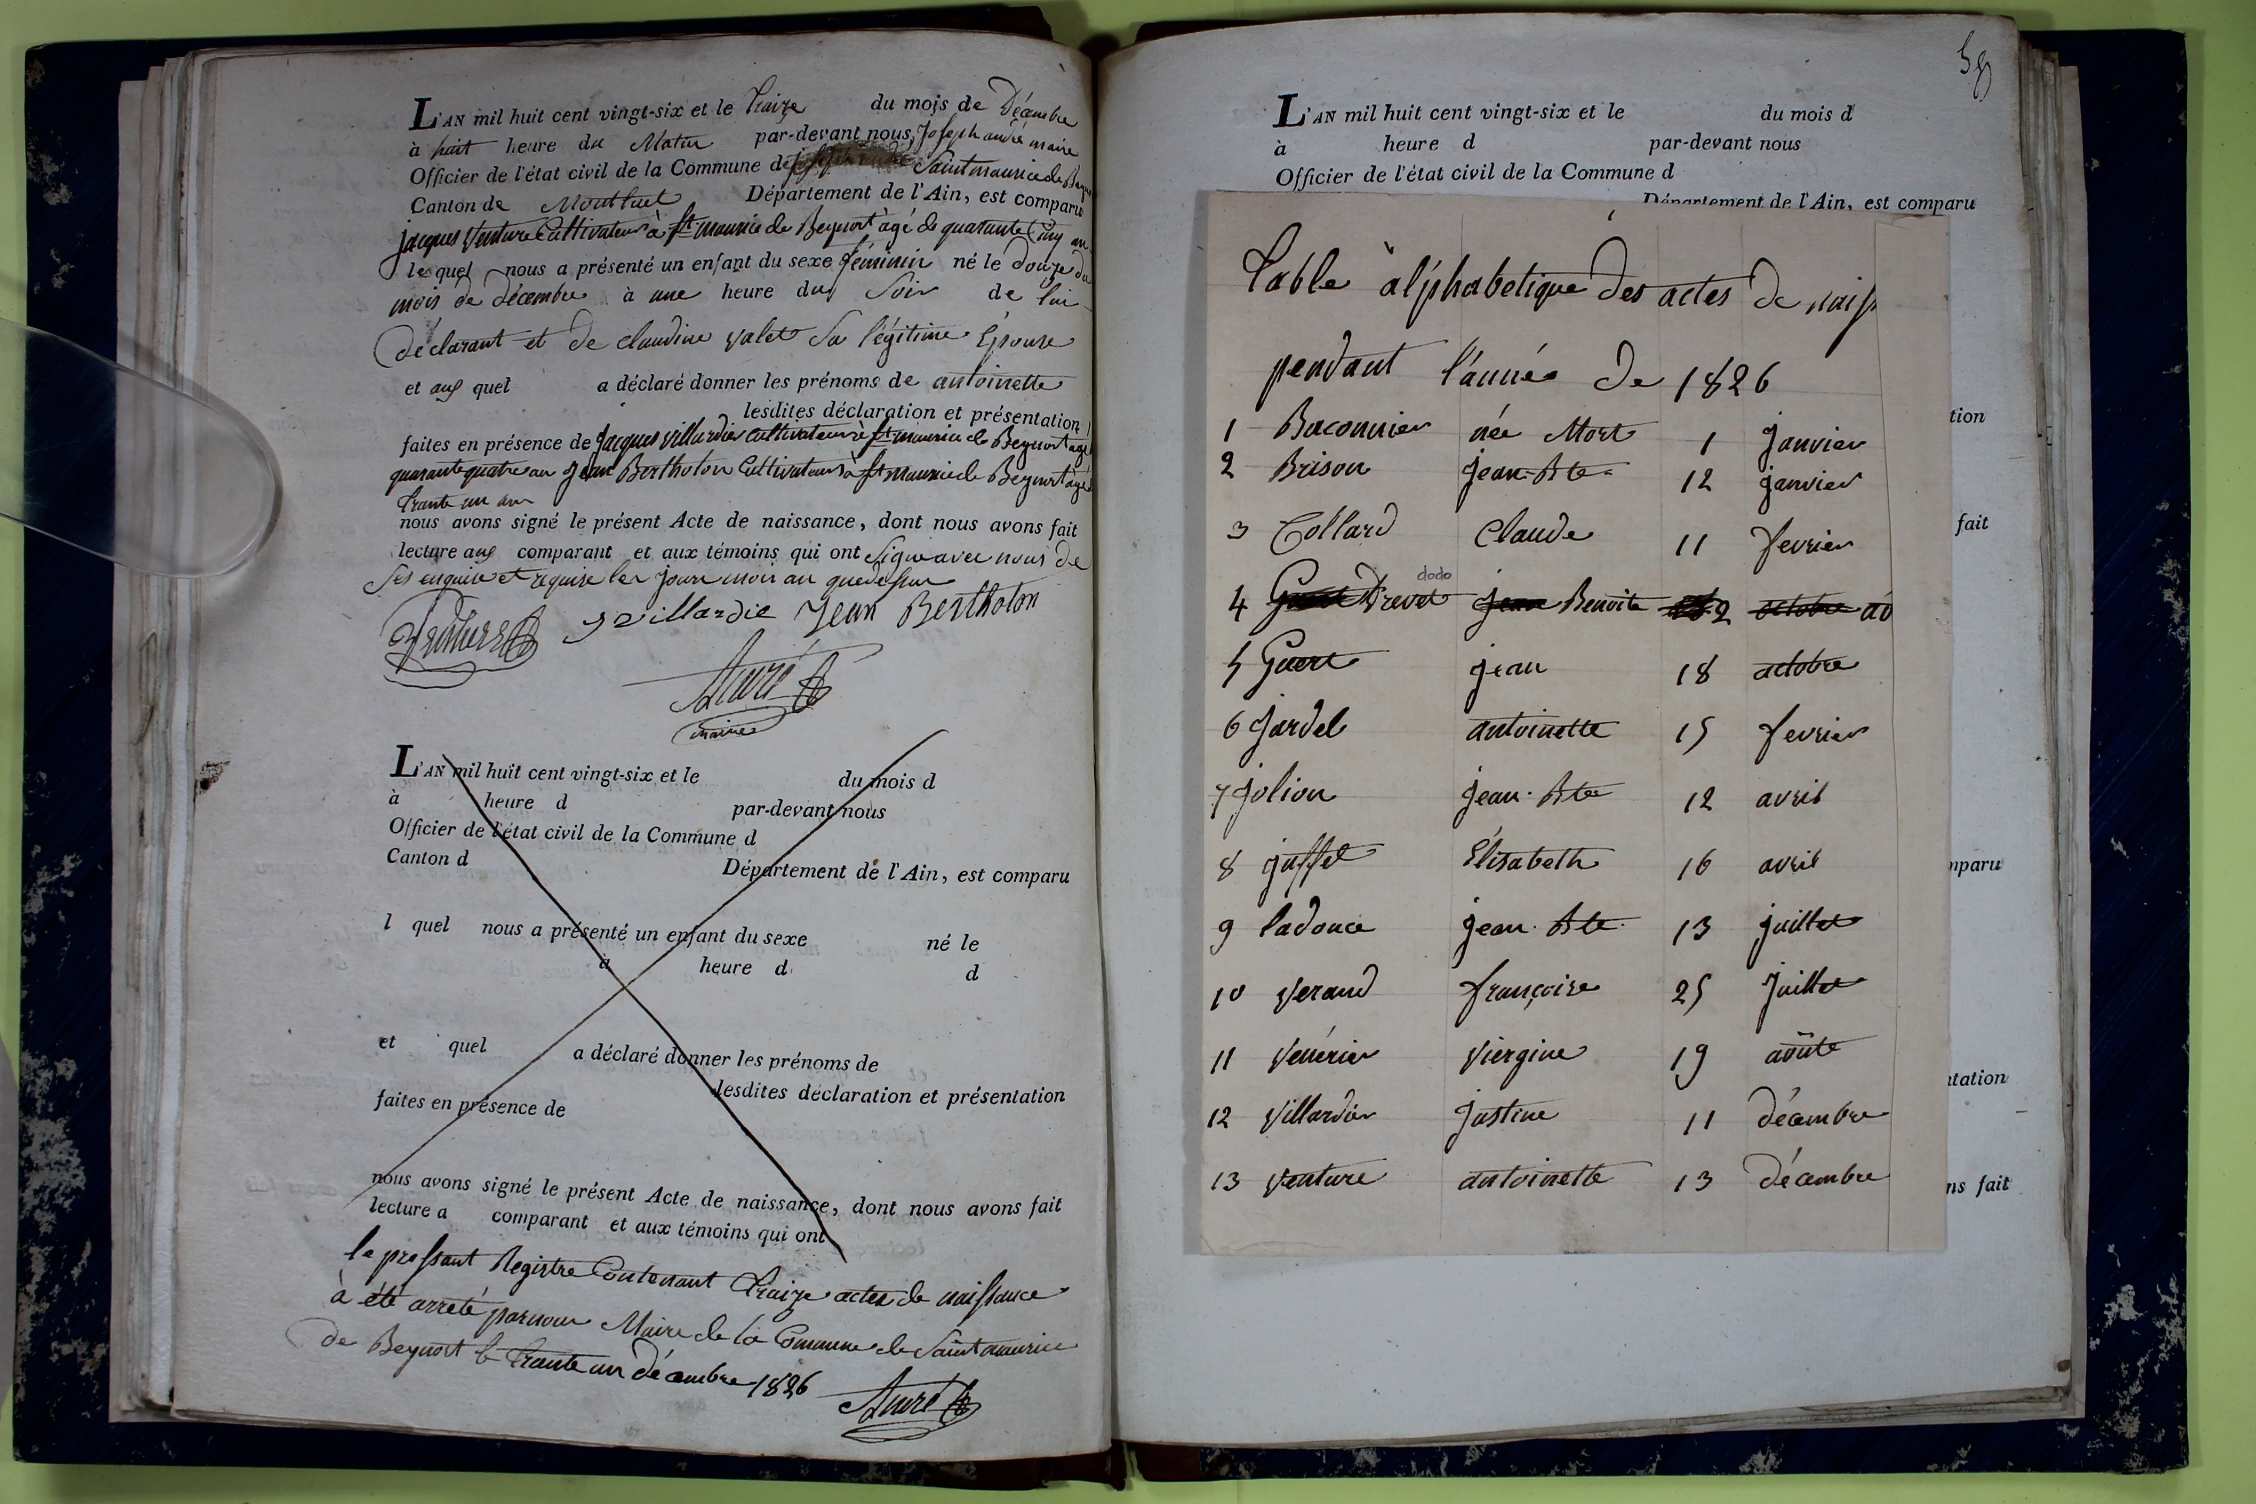 L'AN mil huit cent vingt-six et le traize du mois de Décembre
à huit heure du Matin par-devant nous, Joseph andré maire
Officier de l'état civil de la Commune de Saint maurice de Beyno
Canton de Montluel Département de l'Ain, est comparu
jacques Venture Cultivateur à St maurice de Beynost âgé de quarante Cinq an
lequel nous a présenté un enfant du sexe féminin né le douze du
mois de décembre à une heure du Soir de lui
déclarant et de claudine valet Sa légitime Epouse
et auq quel a déclaré donner les prénoms de antoinette
lesdites déclaration et présentation
faites en présence de Jacques villardier Cultivateur à St maurice de Beynost agé
quarante quatre an Jean Bertholon Cultivateur à St maurice de Beynost agé
trante un an
nous avons signé le présent Acte de naissance, dont nous avons fait
lecture auq comparant et aux témoins qui ont Signé avec nous de
Ses enquise et requise les jours mois an que dessus
J Venture J villardie Jean Bertholon
André
maire
L'AN mil huit cent vingt-six et le du mois d
à heure d par-devant nous
Officier de l'état civil de la Commune d
Canton d Département de l'Ain, est comparu
l quel nous a présenté un enfant du sexe né le
à heure d d
et quel a déclaré donner les prénoms de
lesdites déclaration et présentation
faites en présence de
nous avons signé le présent Acte de naissance, dont nous avons fait
lecture a comparant et aux témoins qui ont
le pressant Registre Contenant traize actes de naissance
à été arreté par nous Maire de la Commune de Saint maurice
de Beynost le trante un décembre 1826
André
58
L'AN mil huit cent vingt-six et le du mois d
à heure d par-devant nous
Officier de l'état civil de la Commune d
Département de l'Ain, est comparu
Table alphabetique des actes de naiss
pendant l'année de 1826
1 Baconnier née Mort 1 Janvier
2 Brison jean-Bte 12 janvier
3 Collard Claude 11 fevrier
dodo
4 Drevet Jean Benoite 2 octobre ao
5 Guert jean 18 octobre
6 jardel antoinette 15 fevrier
7 jolion jean-Bte 12 avril
8 juffet Elisabeth 16 avril
9 ladouce jean-Bte 13 juillet
10 Verand françoise 25 juillet
11 Venérier Viergine 19 aoûte
12 Villardier justine 11 décembre
13 Venture antoinette 13 décembre
tion
fait
mparu
ntation
ns fait